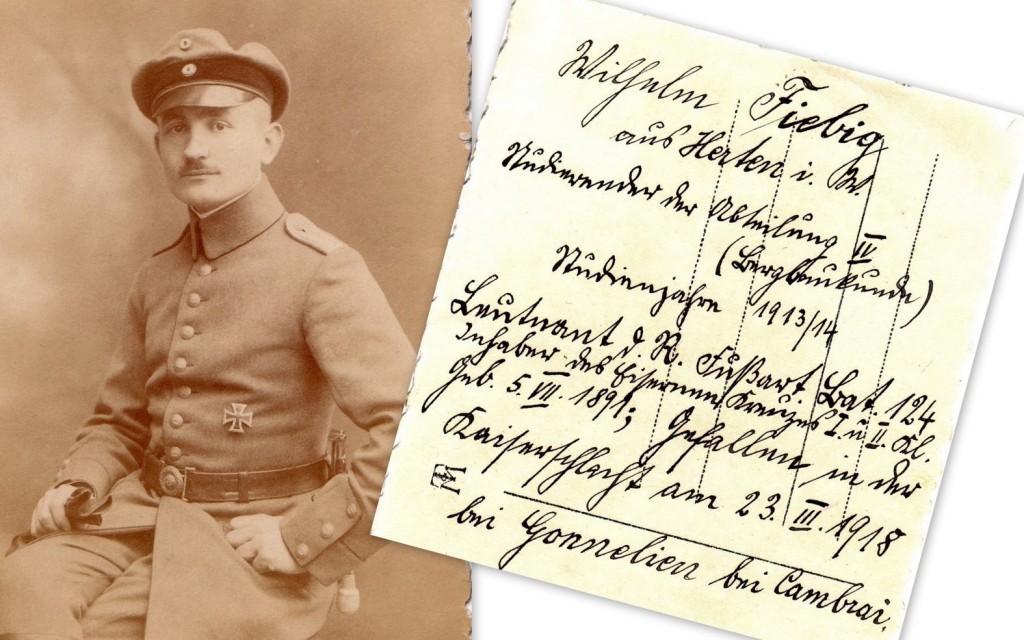 Wilhelm Fiebig
aus Herten i. W.
Studierender der Abteilung IV
(Bergbaukunde)
Studienjahre 1913/14
Leutnant d. R. Fußart. Bat. 124
Inhaber des Eisernen Kreuzes I u. II. Kl.
Geb. 5. VII. 1891; Gefallen in der
Kaiserschlacht am 23. III. 1918
bei Gonnelien bei Cambrai.